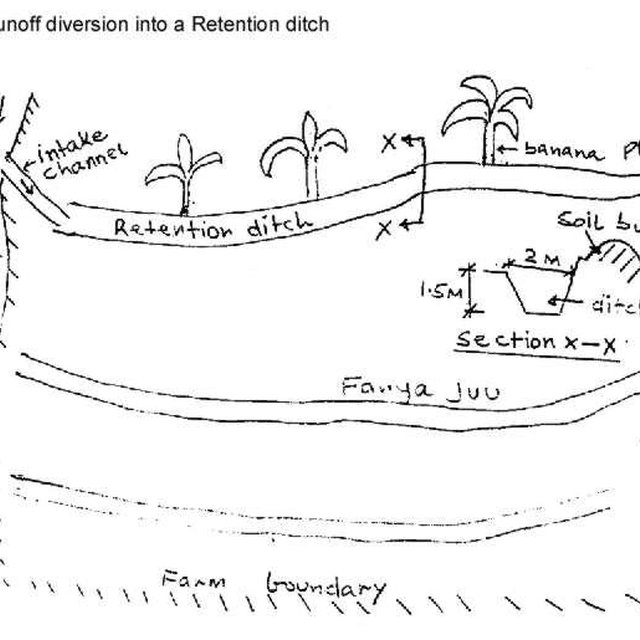 unoff diversion into a Retention ditch
intake
channel
X
banana Pl
Retention ditch
X
Soil bu
2 M
1.5M
ditch
Section X-X
Fanya Juu
Farm boundary